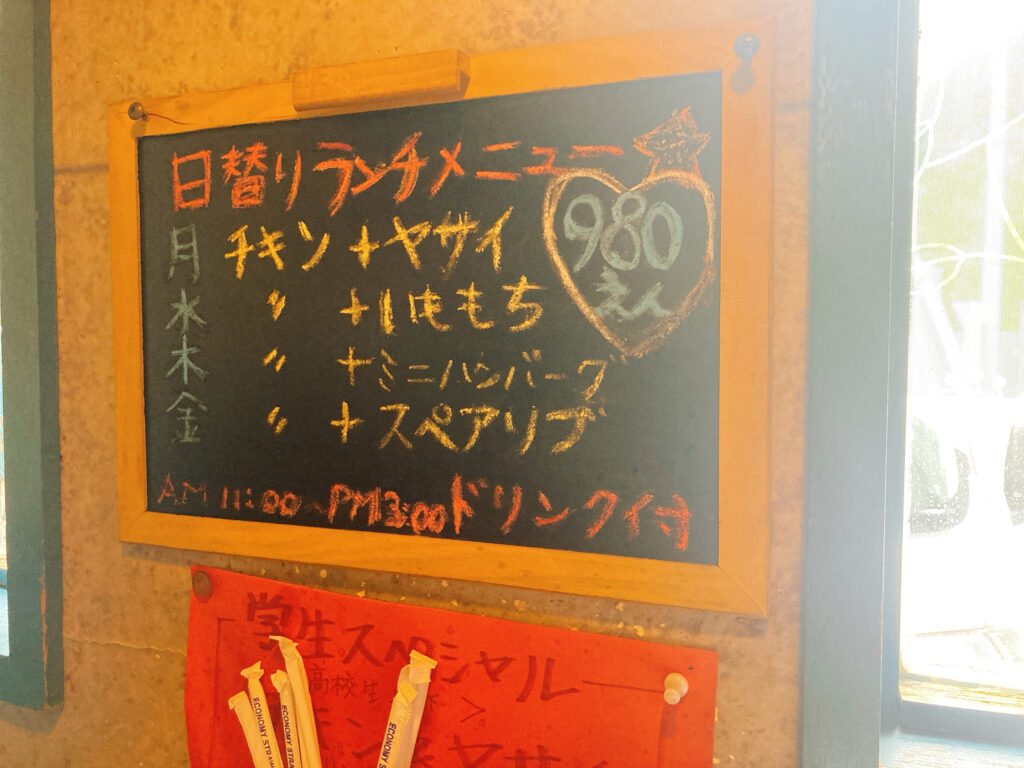 日替りランチメニュー
980
えん
月 チキン+ヤサイ
水 〃 +いももち
木 〃 +ミニハンバーグ
金 〃 +スペアリブ
AM 11:00~PM13:00ドリンク付
学生スペシャル
高校生
ヤサイ
ECONOMY STRAW
ECONOMY STRAW
ECONOMY STRAW